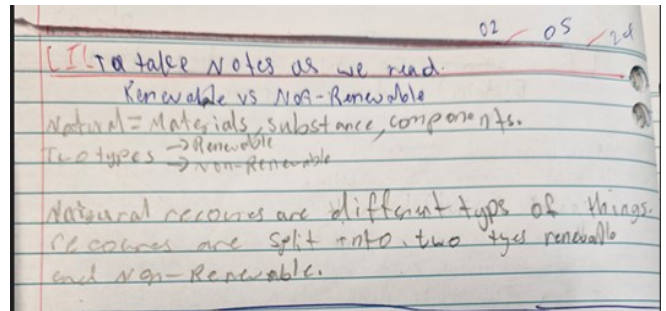 02 / 05 / 24
LI: To take Notes as we read.
Renewable vs Non-Renewable
Natural = Materials, substance, components.
Two types → Renewable
→ Non-Renewable
Natural recources are different typs of things.
recources are split into two tyes renewable
and Non-Renewable.